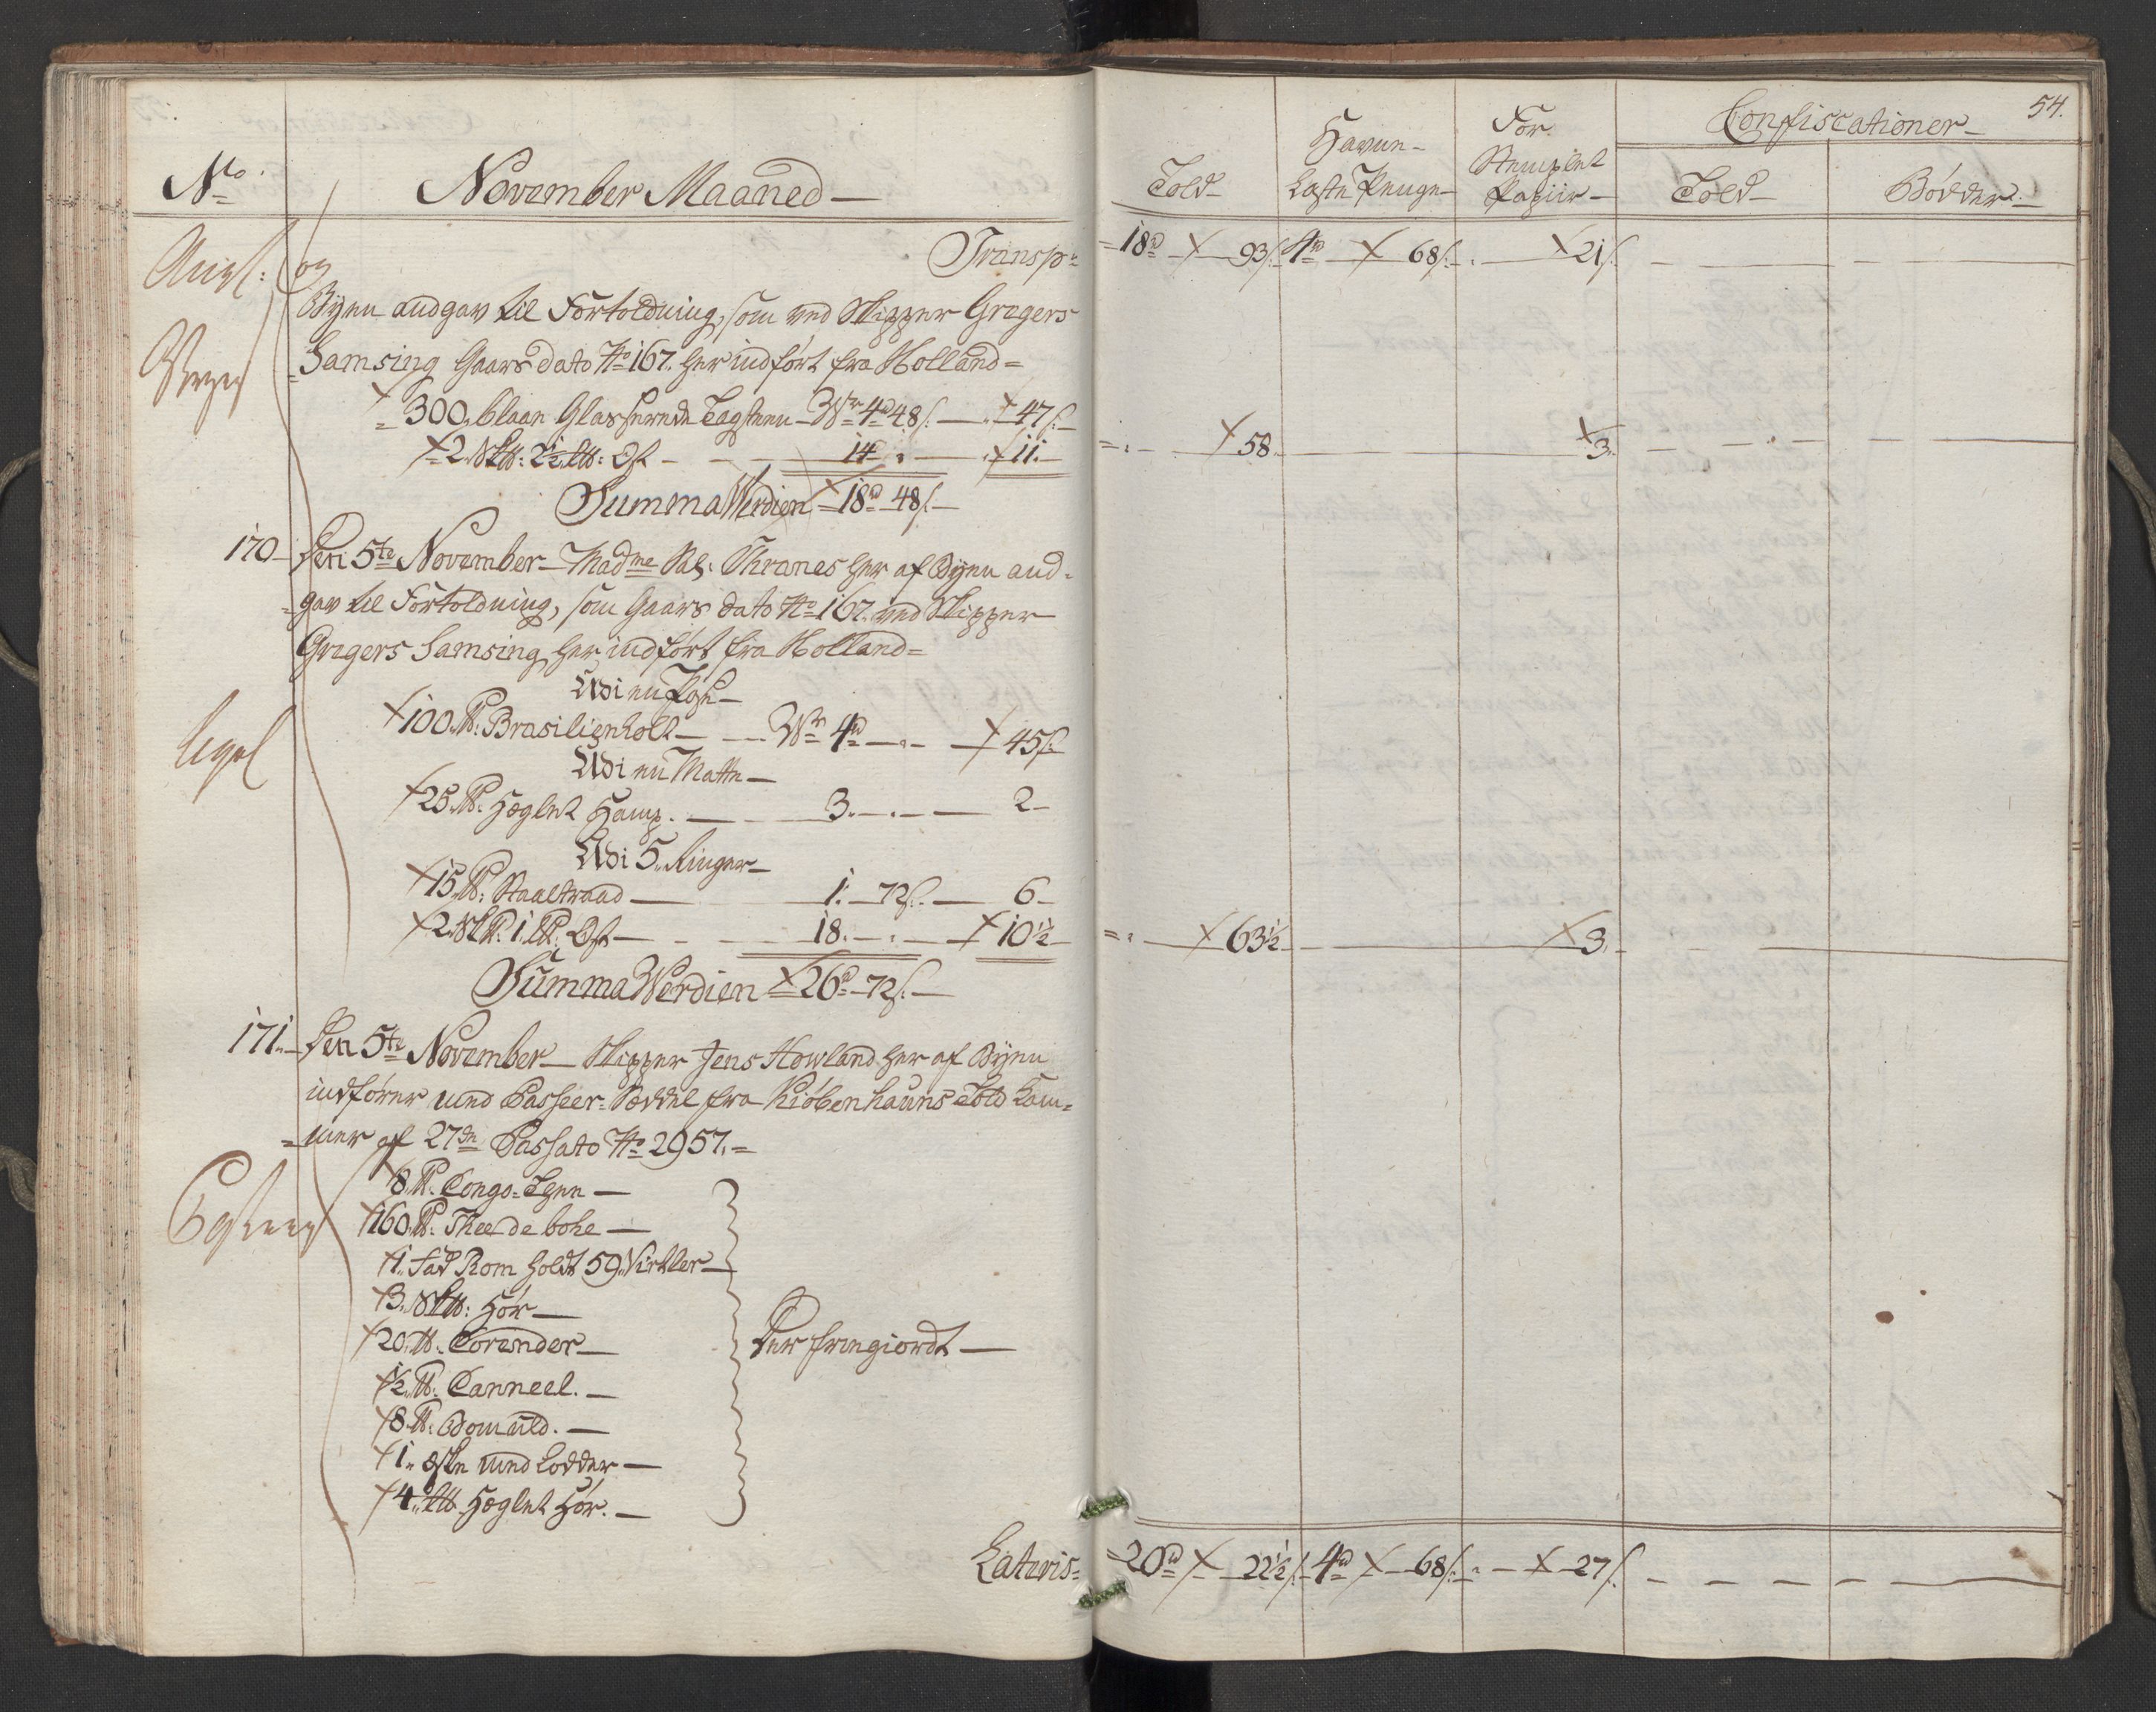 No November Maaned
Transp:
Byen andgav til Fortoldning, som ved Skipper Gregers
Samsing Gaars dato No 167. her indført fra Holland =
300. blaae Glasserede Tagsteen Wr 4rd 48s. 47s.
2. Sk℔: 2½ L℔: Ost 14 11.
Summa Werdien 18rd 48s.
170. Den 5te November Madme Sal. Thranes her af Byen and-
gav til Fortoldning, som Gaars dato No 167. ved Skipper
Gregers Samsing her indført fra Holland =
Udi en
100. ℔: Brasilienholt Wr 4rd 45s.
Udi en Matte
25. ℔. Heglet Hamp. 3. 2
Udi 5. Ringer
15. ℔: Staaltraad 1. 72s. 6
2. Sk℔. 1. L℔. Ost 18. 10½
Summa Werdien 26rd 72s.
171. Den 5te November Skipper Jens Howland her af Byen
indfører med Passeer-Seddel fra Kiøbenhauns Told Cam-
mer af 27de Passato No 2957. =
8. ℔. Congo-Thee
160. ℔. Thee de bohe
1. Fad Rom holdt 59. Virtler
3. Sk℔: Hør
20. ℔. Corender
½. ℔. Canneel.
8. ℔. Bomuld.
1. Æske med Lodder
4. L℔. Heglet Hør.
Der frengiordt
Lateris
54.
Told
Havne-
Læste Penge
For
Stemplet
Papiir
Confiscationer
Told
Bødder
18rd 93s. 4rd 68s. 21s.
58. 3.
63½ 3.
20rd 22½s. 4rd 68s. 27s.